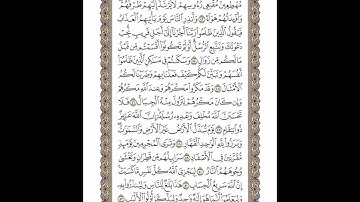 مُهْطِعِينَ مُقْنِعِي رُءُوسِهِمْ لَا يَرْتَدُّ إِلَيْهِمْ طَرْفُهُمْ
وَأَفْئِدَتُهُمْ هَوَاءٌ ٤٣ وَأَنذِرِ النَّاسَ يَوْمَ يَأْتِيهِمُ الْعَذَابُ
فَيَقُولُ الَّذِينَ ظَلَمُوا رَبَّنَا أَخِّرْنَا إِلَىٰ أَجَلٍ قَرِيبٍ نُّجِبْ
دَعْوَتَكَ وَنَتَّبِعِ الرُّسُلَ أَوَلَمْ تَكُونُوا أَقْسَمْتُم مِّن قَبْلُ
مَا لَكُم مِّن زَوَالٍ ٤٤ وَسَكَنتُمْ فِي مَسَاكِنِ الَّذِينَ ظَلَمُوا
أَنفُسَهُمْ وَتَبَيَّنَ لَكُمْ كَيْفَ فَعَلْنَا بِهِمْ وَضَرَبْنَا لَكُمُ
الْأَمْثَالَ ٤٥ وَقَدْ مَكَرُوا مَكْرَهُمْ وَعِندَ اللَّهِ مَكْرُهُمْ
وَإِن كَانَ مَكْرُهُمْ لِتَزُولَ مِنْهُ الْجِبَالُ ٤٦ فَلَا
تَحْسَبَنَّ اللَّهَ مُخْلِفَ وَعْدِهِ رُسُلَهُ إِنَّ اللَّهَ عَزِيزٌ
ذُو انتِقَامٍ ٤٧ يَوْمَ تُبَدَّلُ الْأَرْضُ غَيْرَ الْأَرْضِ وَالسَّمَاوَاتُ
وَبَرَزُوا لِلَّهِ الْوَاحِدِ الْقَهَّارِ ٤٨ وَتَرَى الْمُجْرِمِينَ يَوْمَئِذٍ
مُّقَرَّنِينَ فِي الْأَصْفَادِ ٤٩ سَرَابِيلُهُم مِّن قَطِرَانٍ وَتَغْشَىٰ
وُجُوهَهُمُ النَّارُ ٥٠ لِيَجْزِيَ اللَّهُ كُلَّ نَفْسٍ مَّا كَسَبَتْ
إِنَّ اللَّهَ سَرِيعُ الْحِسَابِ ٥١ هَٰذَا بَلَاغٌ لِّلنَّاسِ وَلِيُنذَرُوا بِهِ
وَلِيَعْلَمُوا أَنَّمَا هُوَ إِلَٰهٌ وَاحِدٌ وَلِيَذَّكَّرَ أُولُو الْأَلْبَابِ ٥٢